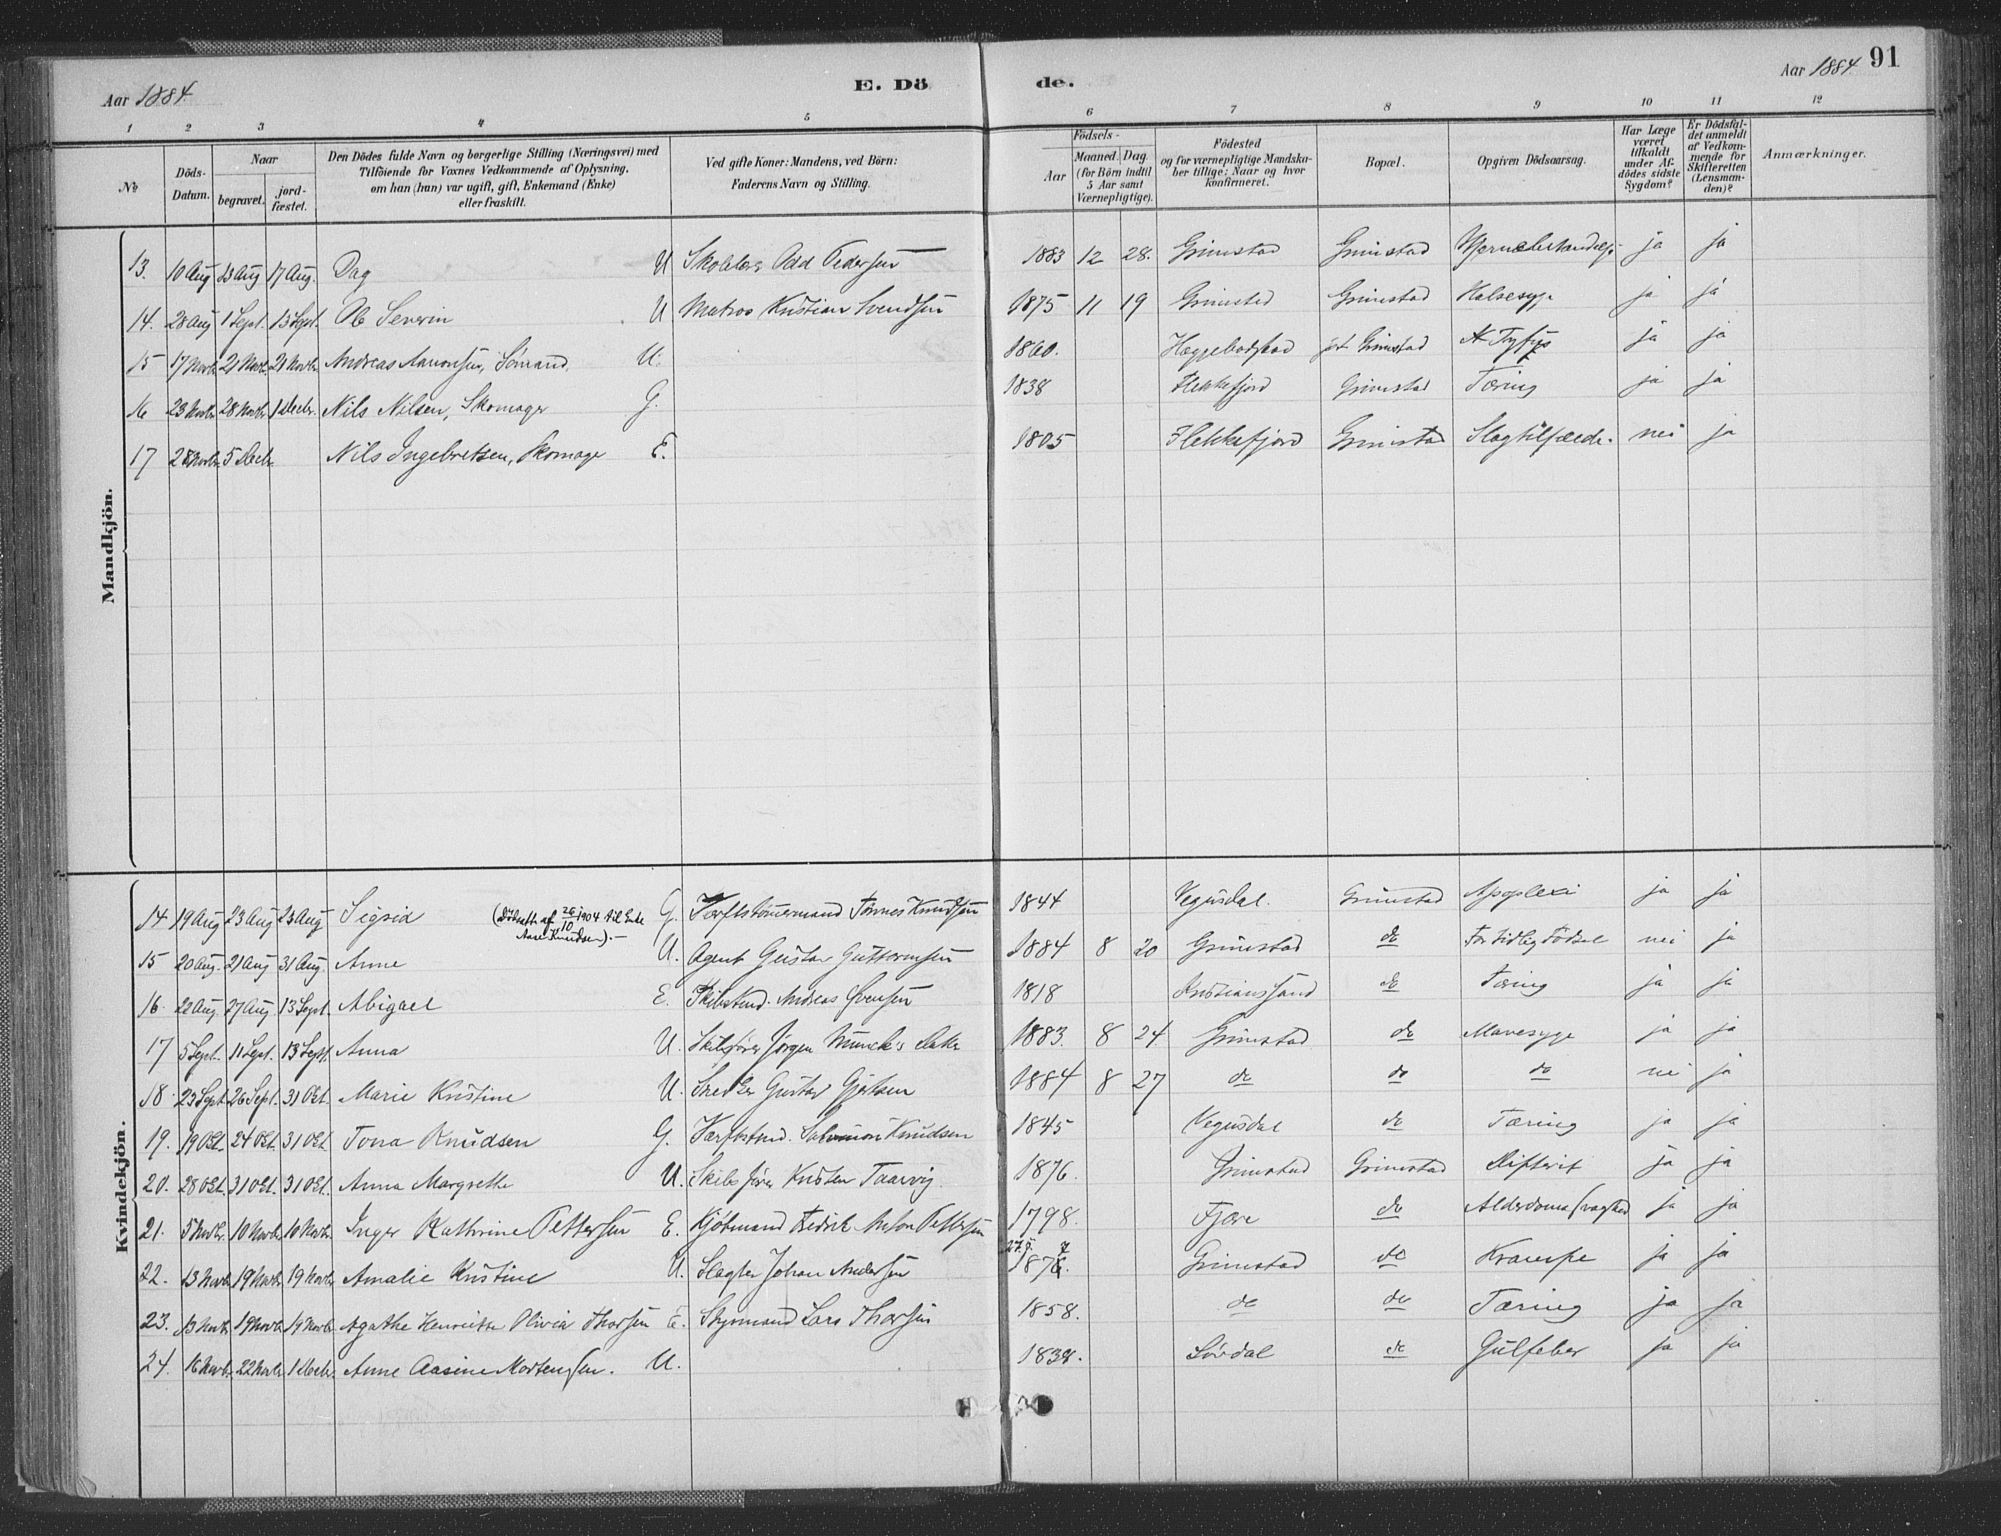 Aar 1884
E. Dö
de.
Aar 1884 91
1 2 3 4 5 6 7 8 9 10 11 12
№
Döds-Datum.
Naar
begravet.
jord-fæstet.
Den Dödes fulde Navn og borgerlige Stilling (Næringsvei) med
Tilföiende for Voxnes Vedkommende af Oplysning,
om han (hun) var ugift, gift, Enkemand (Enke)
eller fraskilt.
Ved gifte Koner: Mandens, ved Börn:
Faderens Navn og Stilling.
Födsels-
Aar
Maaned. Dag.
(for Börn indtil
5 Aar samt
Værnepligtige).
Födested
og for værnepligtige Mandska-
ber tillige: Naar og hvor
konfirmeret.
Bopæl.
Opgiven Dödsaarsag.
Har Læge
været
tilkaldt
under Af-
dödes sidste
Sygdom?
Er Dödsfal-
det anmeldt
af Vedkom-
mende for
Skifteretten
(Lensman-
den)?
Anmærkninger.
Mandkjön.
13. 10 Aug 13 Aug 17 Aug. Dag U Odd Pedersen 1883 12 28. Grimstad Grimstad ja ja
14. 28 Aug 1 Sept. 13 Sept. Ole Severin U Matros Kristian Svendsen 1875 11 19 Grimstad Grimstad Halsesyge ja ja
15 17 Novbr 21 Novbr. 21 Novbr. Andreas Aanonsen, Sömand, U. 1860. Hæggebostad Grimstad Tyfus ja ja
16 23 Novbr. 28 Novbr. 1 Decbr. Nils Nilsen, Skomager G. 1838 Flekkefjord Grimstad Tæring ja ja
17 28 Novbr. 5 Decbr. Nils Ingebretsen, Skomager E. 1805 Flekkefjord Grimstad Slagtilfælde. nei ja
Kvindekjön.
14 19 Aug 23 Aug 23 Aug Sigrid (Döbeatt. af 26/10 1904 til Aase Knudsen).— G. Værftstömermand Tönnes Knudsen 1844 Vegusdal. Grimstad Apoplexi ja ja
15 20 Aug. 21 Aug 31 Aug. Anne U. Agent Gustav Guttormsen 1884 8 20 Grimstad do For tidlig Födsel nei ja
16. 22 Aug. 27 Aug 13 Sept. Abigael E. Skibstmd. Andreas Svensen 1818 Kristianssand do Tæring ja ja
17 5 Sept. 11 Sept. 13 Sept. Anna U. Skibsförer Jörgen Munch's 1883. 8 24 Grimstad do Mavesyge ja ja
18. 23 Sept. 26 Sept. 31 Oct. Marie Kristine U. Snedker Gustav 1884 8 27 do do do nei ja
19. 19 Oct. 24 Oct. 31 Oct. Tona Knudsen G. Værftstmd. Salomon Knudsen 1845 Vegusdal do Tæring ja ja
20. 28 Oct. 31 Oct. 31 Oct. Anna Margrethe U. Skibsförer Knsten Taarvig. 1876. Grimstad Grimstad Difterit ja ja
21. 5 Novbr. 10 Novbr. 10 Novbr. Inger Kathrine Pettersen E. Kjöbmand Fredrik Anton Pettersen 1798. Fjære do ja ja
22. 13 Novbr. 19 Novbr. 19 Novbr. Amalie Kristine U. Slagter Johan Andersen 1876. Grimstad do Krampe ja ja
23. 13 Novbr. 19 Novbr. 19 Novbr. Agathe Henriette Olivia Thorsen E. Styrmand Lars Thorsen 1858. do do Tæring ja ja
24. 16 Novbr. 22 Novbr. 1 Decbr. Anne Aasine Mortensen. U. 1838. do Gulfeber ja ja